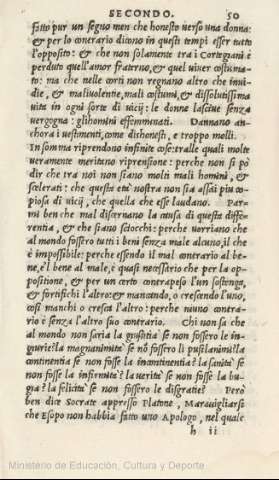 SECONDO. 50
fatto pur un segno men che honesto uerso una donna:
& per lo contrario dicono in questi tempi esser tutto
l'opposito: & che non solamente tra i Cortegiani è
perduto quell'amor fraterno, & quel uiuer costuma-
to: ma che nelle corti non regnano altro che inui-
die, & maliuolentie, mali costumi, & dissolutissima
uita in ogni sorte di uicij: le donne lasciue senza
uergogna: gli homini effemminati. Dannano an-
chora i uestimenti, come dishonesti, e troppo molli.
In somma riprendono infinite cose: tralle quali molte
ueramente meritano riprensione: perche non si pò
dir che tra noi non siano molti mali homini, &
scelerati: che questa età nostra non sia assai piu co-
piosa di uicij, che quella che esse laudano. Par-
mi ben che mal discernano la causa di questa diffe-
rentia, & che siano sciocchi: perche uorriano che
al mondo fossero tutti i beni senza male alcuno, il che
è impossibile: perche essendo il mal contrario al be-
ne, e'l bene al male, è quasi necessario che per la op-
positione, & per un certo contrapeso l'un sostenga,
& fortifichi l'altro: & mancando, o crescendo l'uno,
così manchi o cresca l'altro: perche niuno contra-
rio è senza l'altro suo contrario. Chi non sa che
al mondo non saria la giustitia se non fossero le in-
giurie? la magnanimità se nō fossero li pusilanimi? la
continentia se non fosse la incontinentia? la sanità se
non fosse la infirmità? la uerità se non fosse la bu-
gia? la felicità se non fossero le disgratie? Però
ben dice Socrate appresso Platone, Marauigliarsi
che Esopo non habbia fatto uno Apologo, nel quale
h ii
Ministerio de Educación, Cultura y Deporte